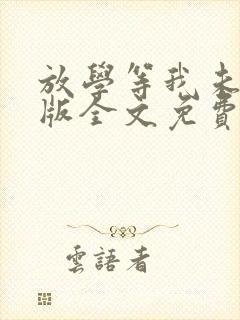 放學等我未
版全文免費
雲語者